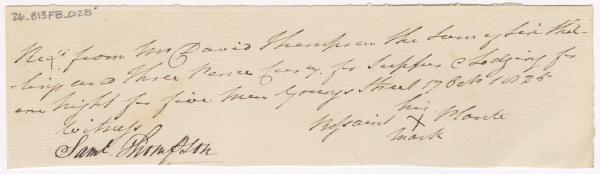 26_813FB_028
Recd from Mr David Thompson the Sum of Six Shil-
-lings and three Pence Curcy for Supper & Lodging for
one night for five men Youngs Street 17 Octr 1825
Witness
his
X Plante
mark
Saml. Thompson